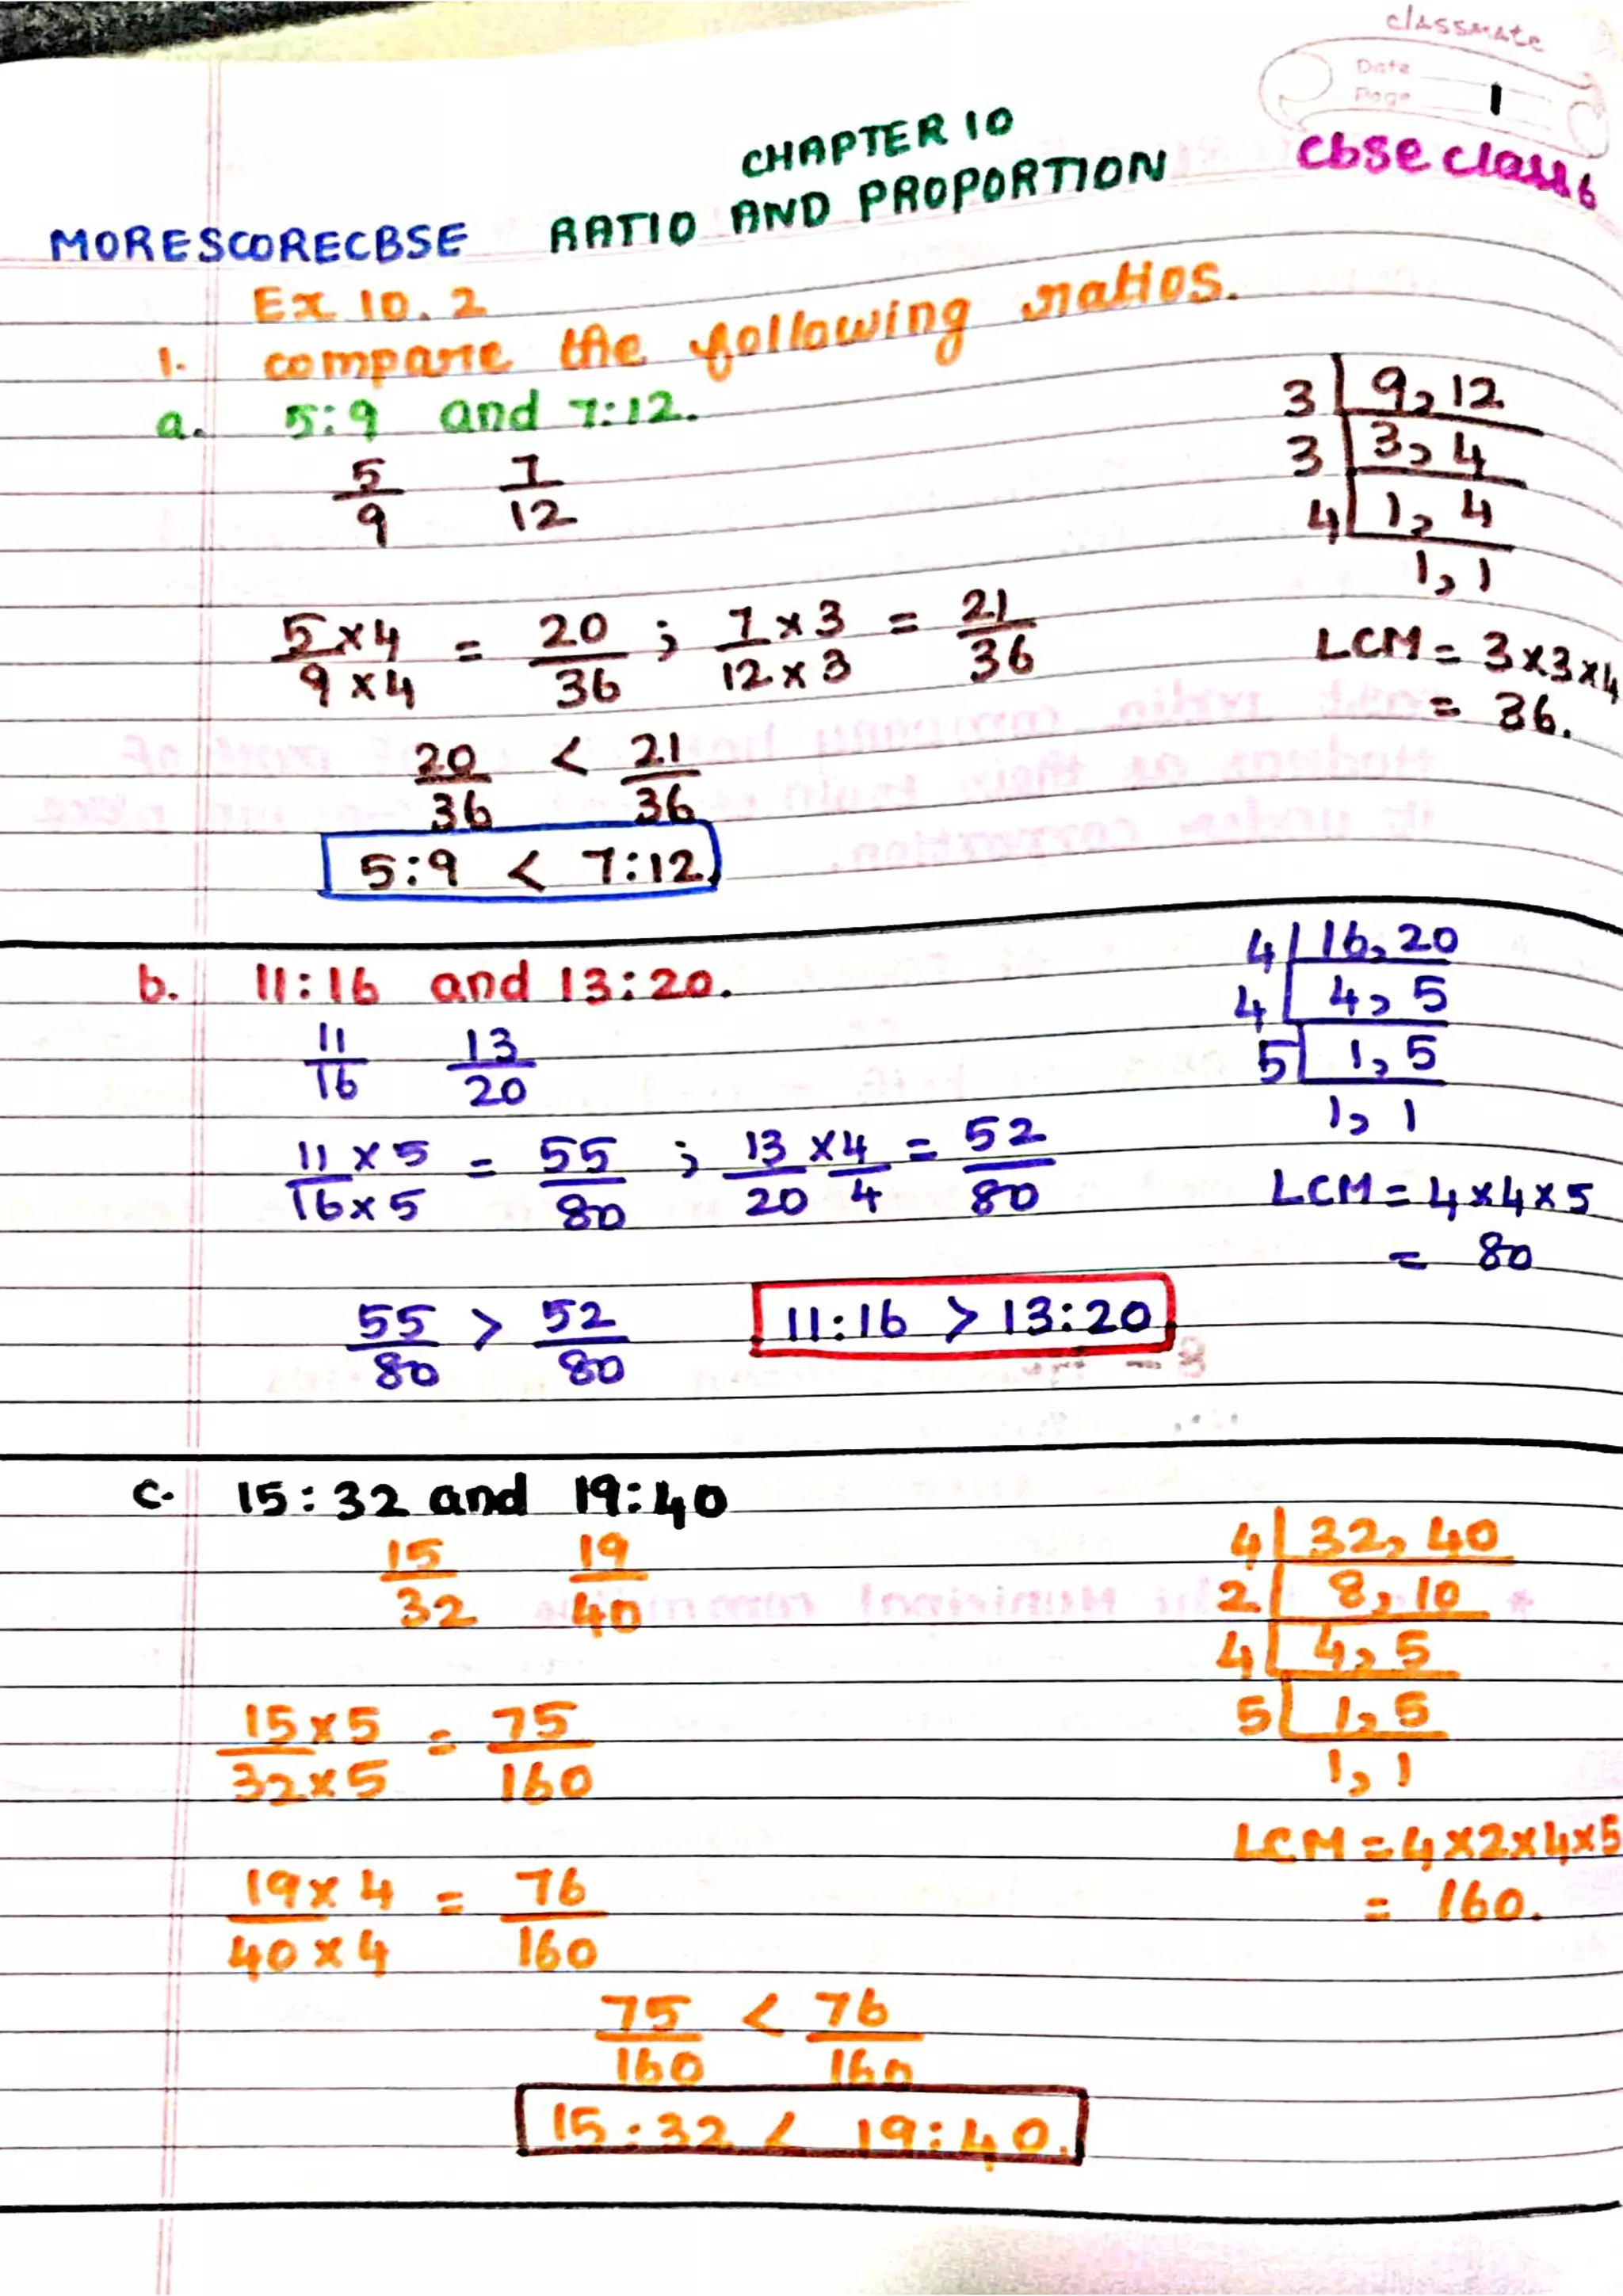 classmate
Date
Page 1
CHAPTER 10
cbse class 6
MORESCORECBSE RATIO AND PROPORTION
Ex 10.2
1. compare the following ratios.
a. 5:9 and 7:12.
5/9 7/12
3 | 9, 12
3 | 3, 4
4 | 1, 4
1, 1
5×4/9×4 = 20/36 ; 7×3/12×3 = 21/36
LCM = 3×3×4
= 36.
20/36 < 21/36
5:9 < 7:12
b. 11:16 and 13:20.
11/16 13/20
4 | 16, 20
4 | 4, 5
5 | 1, 5
1, 1
11×5/16×5 = 55/80 ; 13/20 × 4/4 = 52/80
LCM = 4×4×5
= 80
55/80 > 52/80 11:16 > 13:20
c. 15:32 and 19:40
15/32 19/40
4 | 32, 40
2 | 8, 10
4 | 4, 5
5 | 1, 5
1, 1
15×5/32×5 = 75/160
LCM = 4×2×4×5
= 160.
19×4/40×4 = 76/160
75/160 < 76/160
15:32 < 19:40.